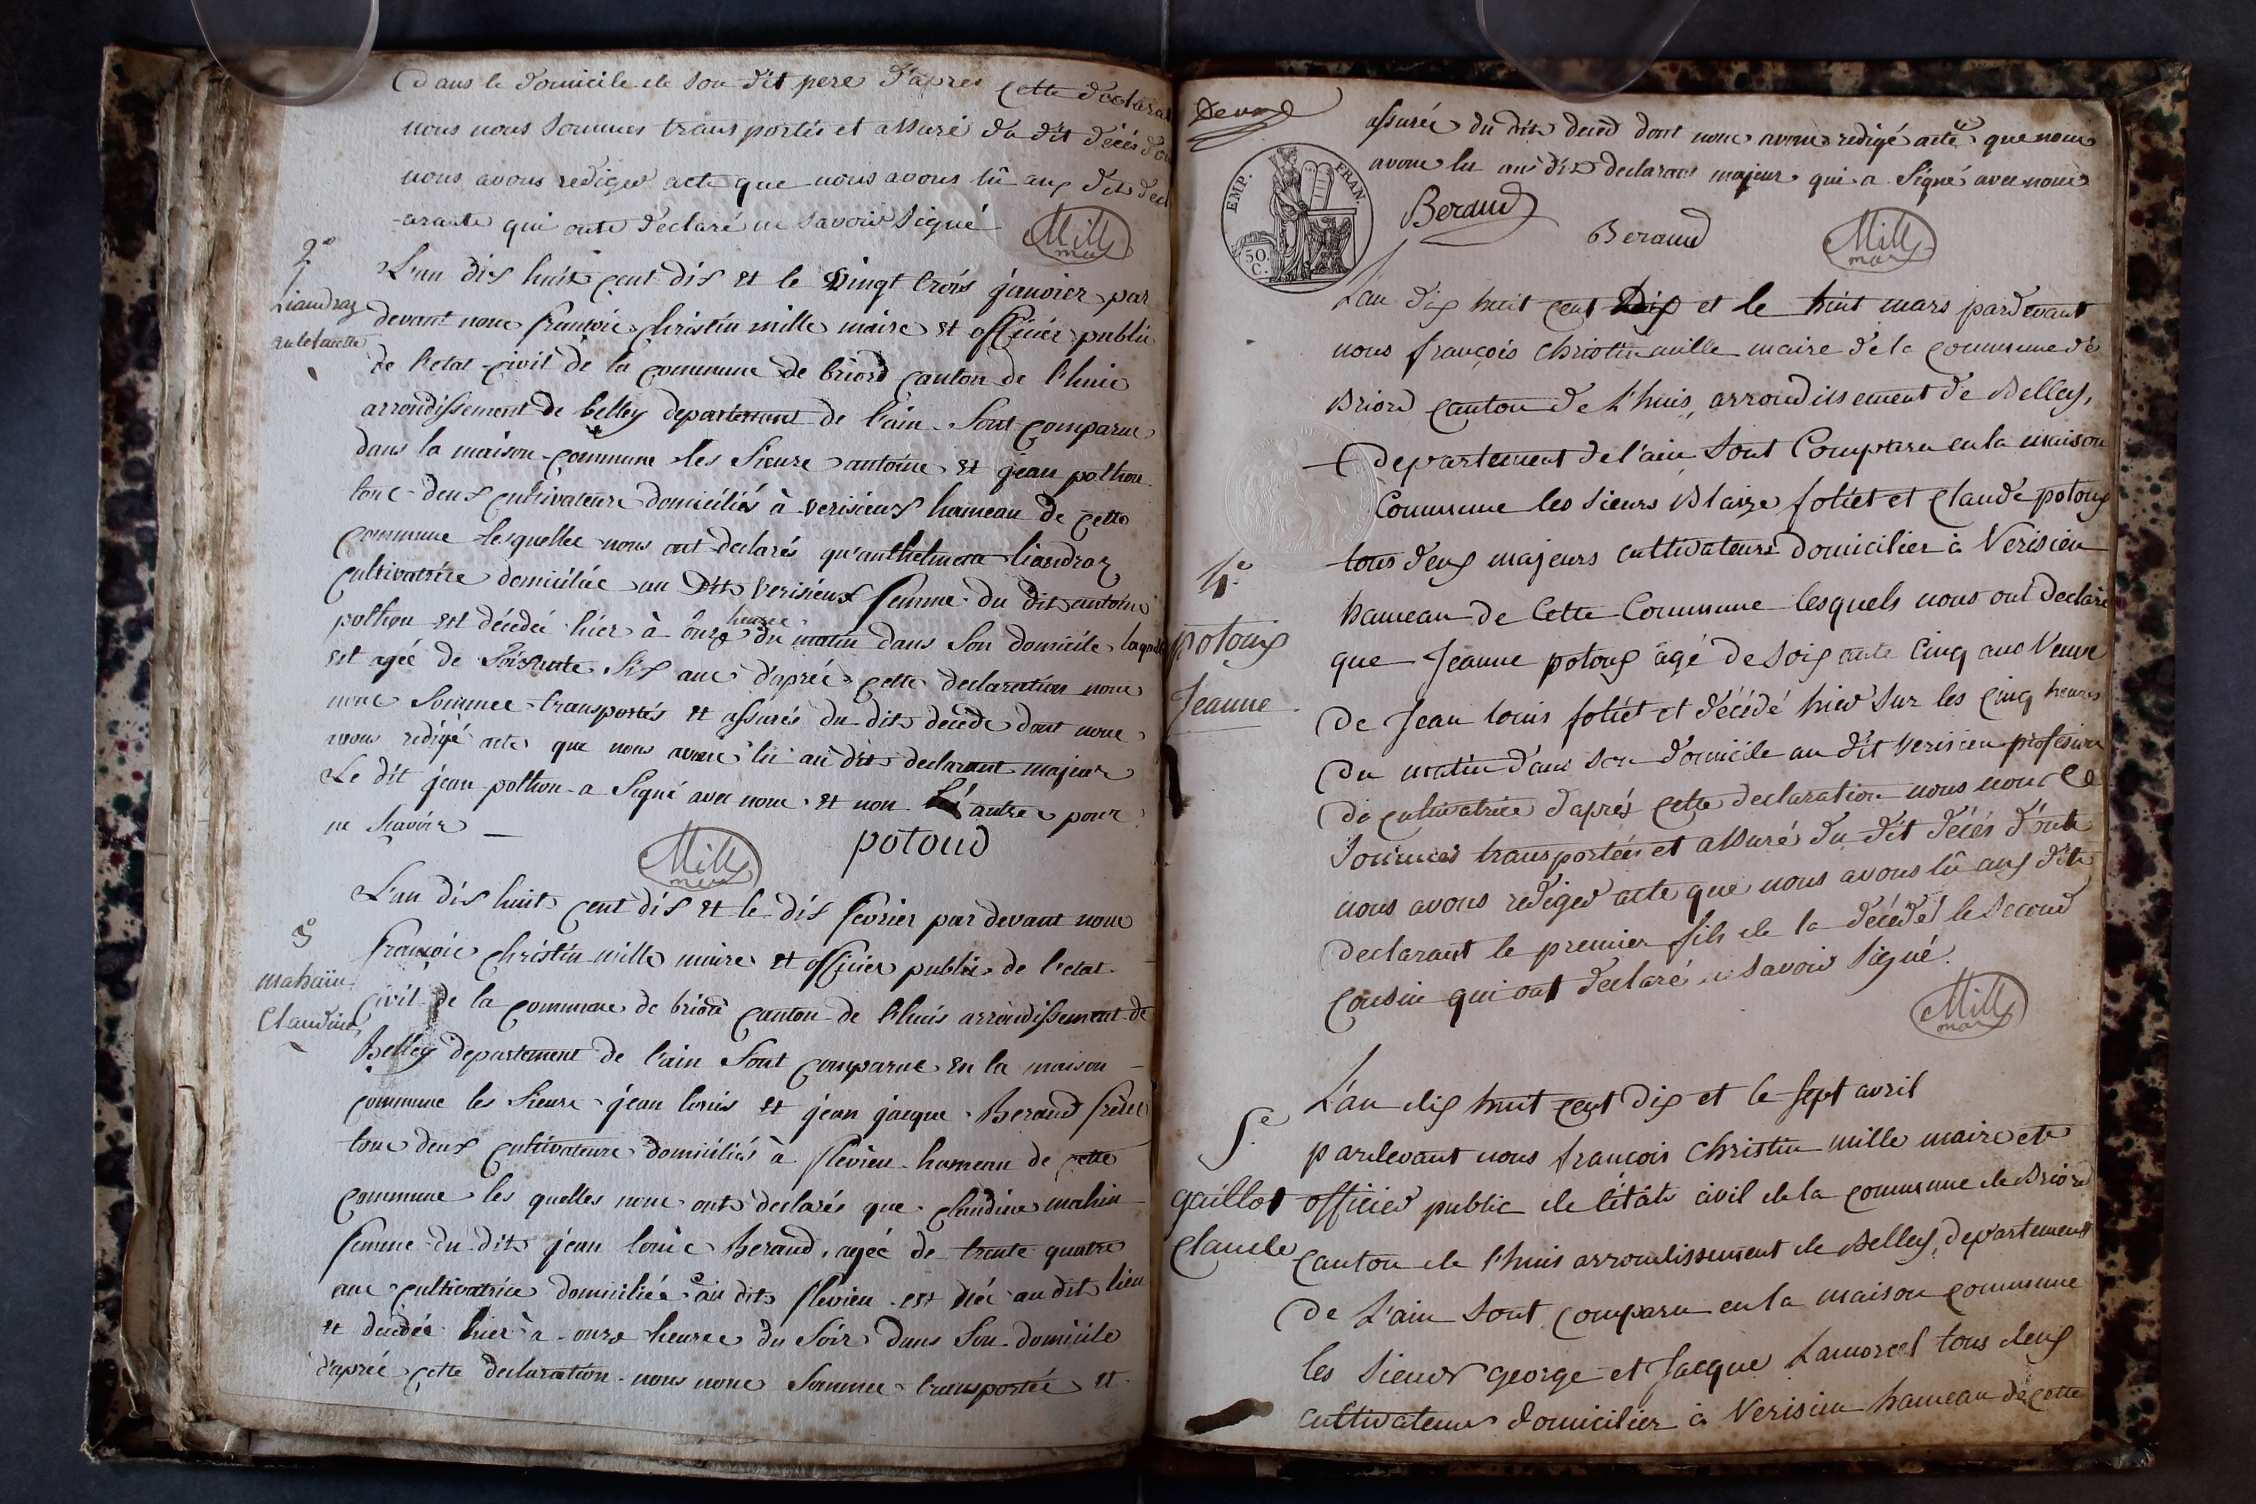 dans le domicile de son dit pere d'après cette declarat
nous nous sommes transportés et assuré du dit décès d'on
nous avons rediger acte que nous avons lû aux dits decl
-arante qui onts declaré ne savoir signé
Mille
maire
2e
Liandraz
L'an dix huit cent dix et le vingt trois janvier par
devant nous françois christin mille maire et officier public
de l'etat-civil de la commune de briord canton de lhuis
arrondissement de belley departement de l'ain. Sont comparus
dans la maison-commune les sieurs antoine et jean pothon
tous-deux cultivateurs domiciliés à verisieux hameau de cette
commune lesquelles nous ont declarés qu'anthelmette liandraz
cultivatrice domiciliée au dit verisieux femme du dit antoine
pothon est décédée hier à onze heures du matin dans son domicile laquelle
est agée de soixante six ans d'après cette declaration nous
nous sommes transportés et assurés du dit décédé dont nous
avons redigé acte que nous avons lu au dits declarant majeur
Le dit jean pothon a signé avec nous et non l'autre pour
ne sçavoir
Mille
maire
potoud
3e
mahain
Claudine
L'an dix huit cent dix et le dix fevrier par devant nous
françois christin mille maire et officier public de l'etat
civil de la commune de briord canton de lhuis arrondissement de
Belley departement de l'ain sont comparus en la maison
commune les sieurs jean louis et jean jacque Beraud frères
tous deux cultivateurs domiciliés à flevieu hameau de cette
commune les quelles nous onts declarés que claudine mahin
femme du dit jean louis Beraud, agée de trente quatre
ans cultivatrice domiciliée au dits flevieu est née au dit lieu
et decédée hier à onze heures du soir dans son domicile
d'après cette declaration nous nous sommes transportés et
assurés du dit deced dont nous avons redigé acte que nous
avons lu aus dits declarans majeur qui a signé avec nous
EMP. FRAN.
50. C.
Beraud
Beraud
Mille
maire
L'an dix huit cent Dix et le huit mars pardevant
nous françois christin mille maire de la commune de
Briord canton de L'huis, arrondissement de Belley,
departement de l'ain sont comparu en la maison
Commune les sieurs Blaize foliet et claude potoux
tous deux majeurs cultivateurs domicilier à Verisieu
4e
potoux
Jeanne
hameau de cette commune lesquels nous ont declaré
que Jeanne potoux âgé de soixante cinq ans Veuve
de Jean louis foliet et décédé hier sur les cinq heures
du matin dans son domicile au dit verisieu profession
de cultivatrice d'après cette declaration nous nous
sommes transportées et assuré du dit décés d'onts
nous avons rediger acte que nous avons lû aux dits
declarant le premier fils de la décédé le second
cousin qui ont declaré ne savoir signé.
Mille
maire
L'an dix huit cent dix et le sept avril
5e
pardevant nous françois christin mille maire et
gaillot
claude
officier public de l'états civil de la commune de Briord
canton de lhuis arrondissement de Belley, departement
de L'ain sont comparu en la maison commune
les sieurs george et Jacque Lamorcel tous deux
cultivateurs domicilier à Verisieu hameau de cette